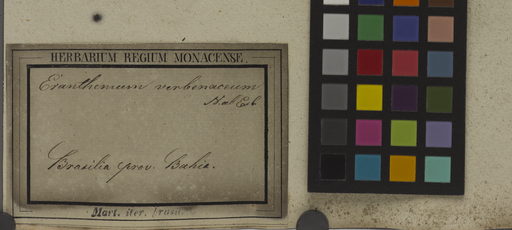 HERBARIUM REGIUM MONACENSE.
Eranthemum verbenaceum
N. ab Es.
Brasilia prov. Bahia.
Mart. iter. Brasil.